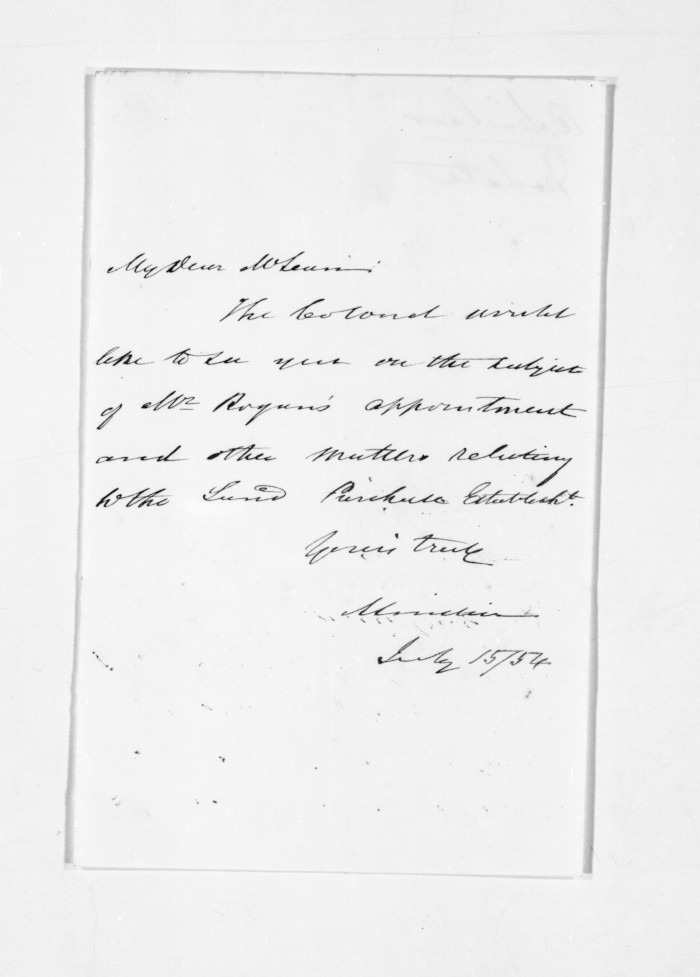 My Dear McLean;
The Colonel would
like to see you on the subject
of Mr Rogan's appointment
and other matters relating
to the Land Purchase Establisht.
Yours truly
July 15/54